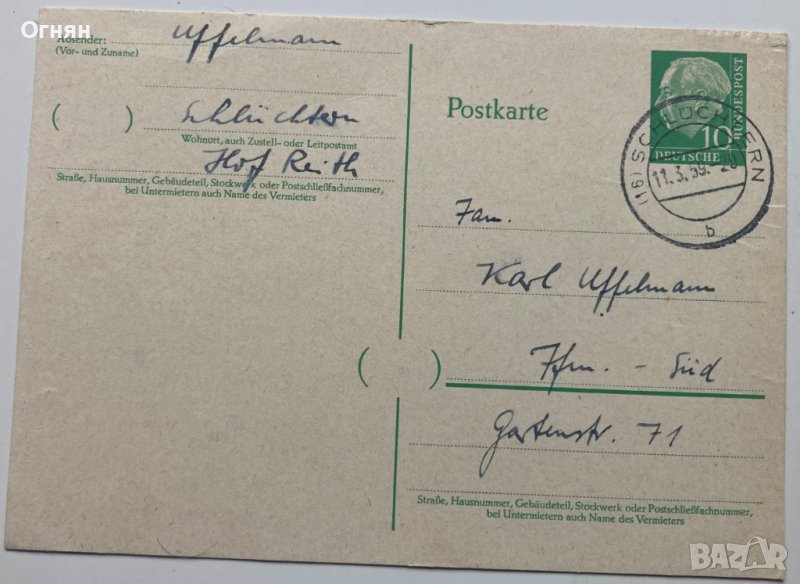 Огнян
Absender: Uffelmann
(Vor- und Zuname)
Schlüchtern
Wohnort, auch Zustell- oder Leitpostamt
Hof Reith
Straße, Hausnummer, Gebäudeteil, Stockwerk oder Postschließfachnummer,
bei Untermietern auch Name des Vermieters
Postkarte
10
DEUTSCHE
BUNDESPOST
(16) SCHLÜCHTERN
11.3.59.
b
Fam.
Karl Uffelmann
Ffm. - Süd
Gartenstr. 71
Straße, Hausnummer, Gebäudeteil, Stockwerk oder Postschließfachnummer,
bei Untermietern auch Name des Vermieters
BAZAR